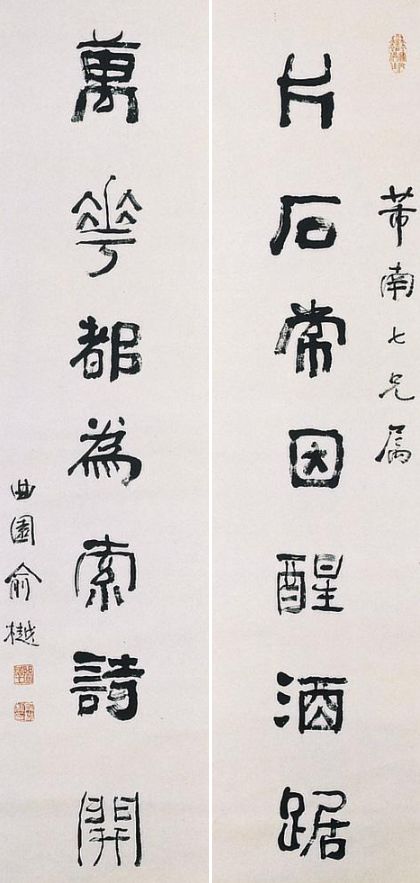 芾南七兄属
片石常因醒酒踞
萬華都為索詩開
曲園俞樾